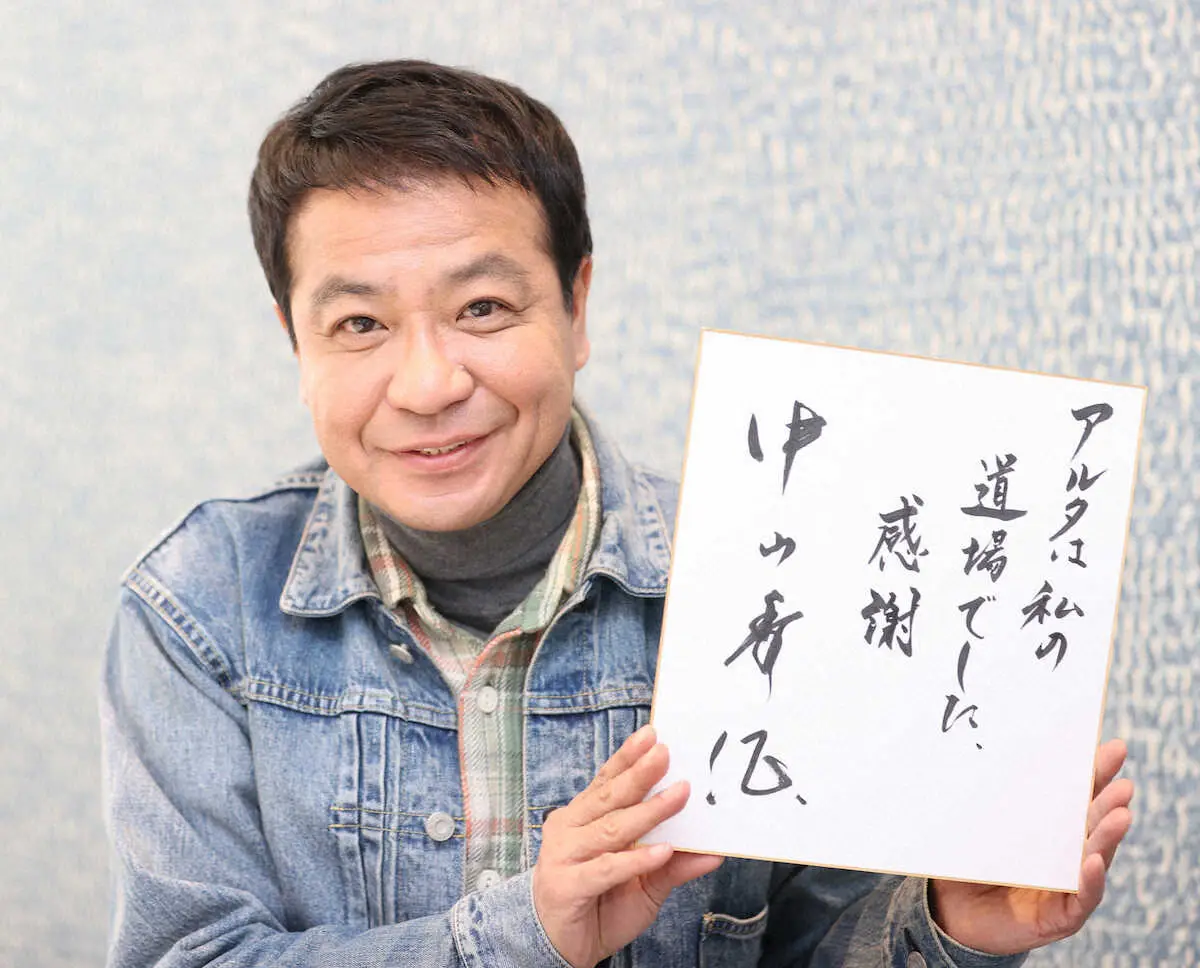 アルタは私の
道場でした、
感謝
中山秀征